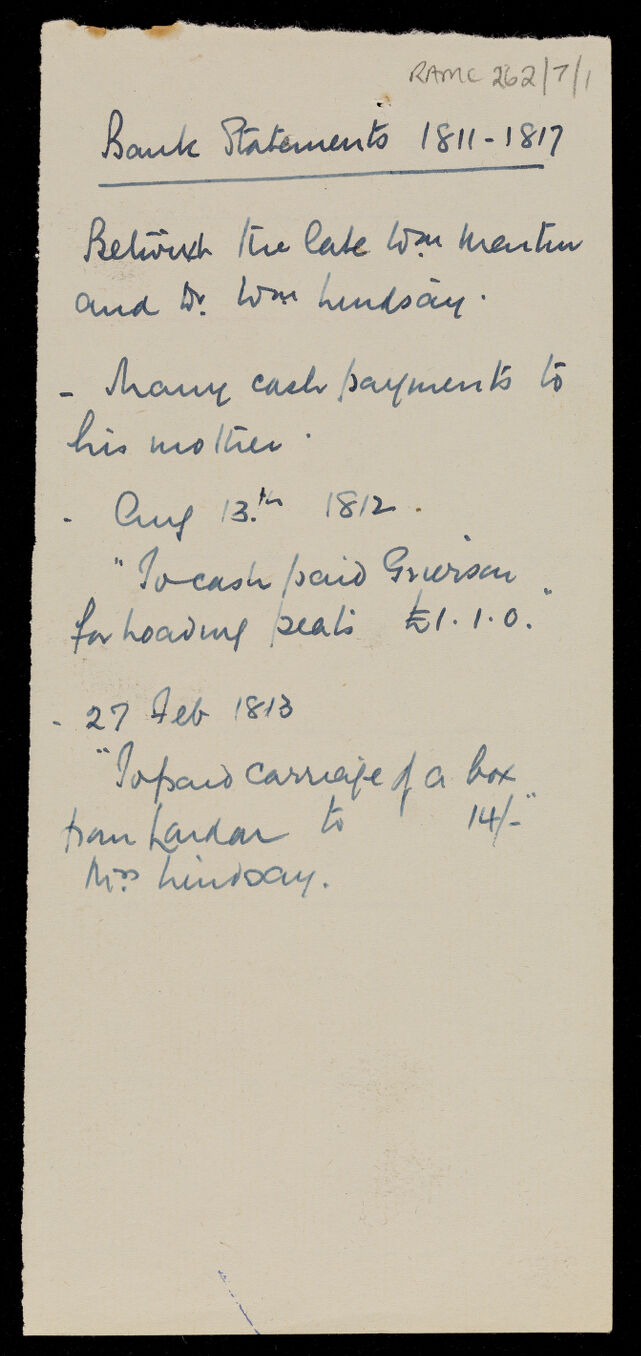 RAMC 262/7/1
Bank Statements 1811-1817
Betwixt the late Wm
and Dr. Wm Lindsay.
- Many cash payments to
his mother.
- Aug 13.th 1812.
"To cash paid Grierson
for loading peats £1.1.0."
- 27 Feb 1813
"To paid carriage of a box
from London to 14/-"
Mrs Lindsay.